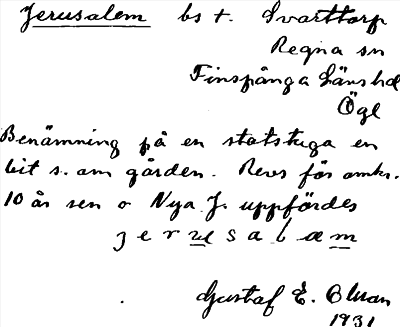 Jerusalem bs t. Svarttorp
Regna sn
Finspånga länshd
Ögl
Benämning på en statstuga en
bit s. om gården. Revs för omkr.
10 år sen o Nya J. uppfördes
jerusalæm
Gustaf E. Olsson
1931